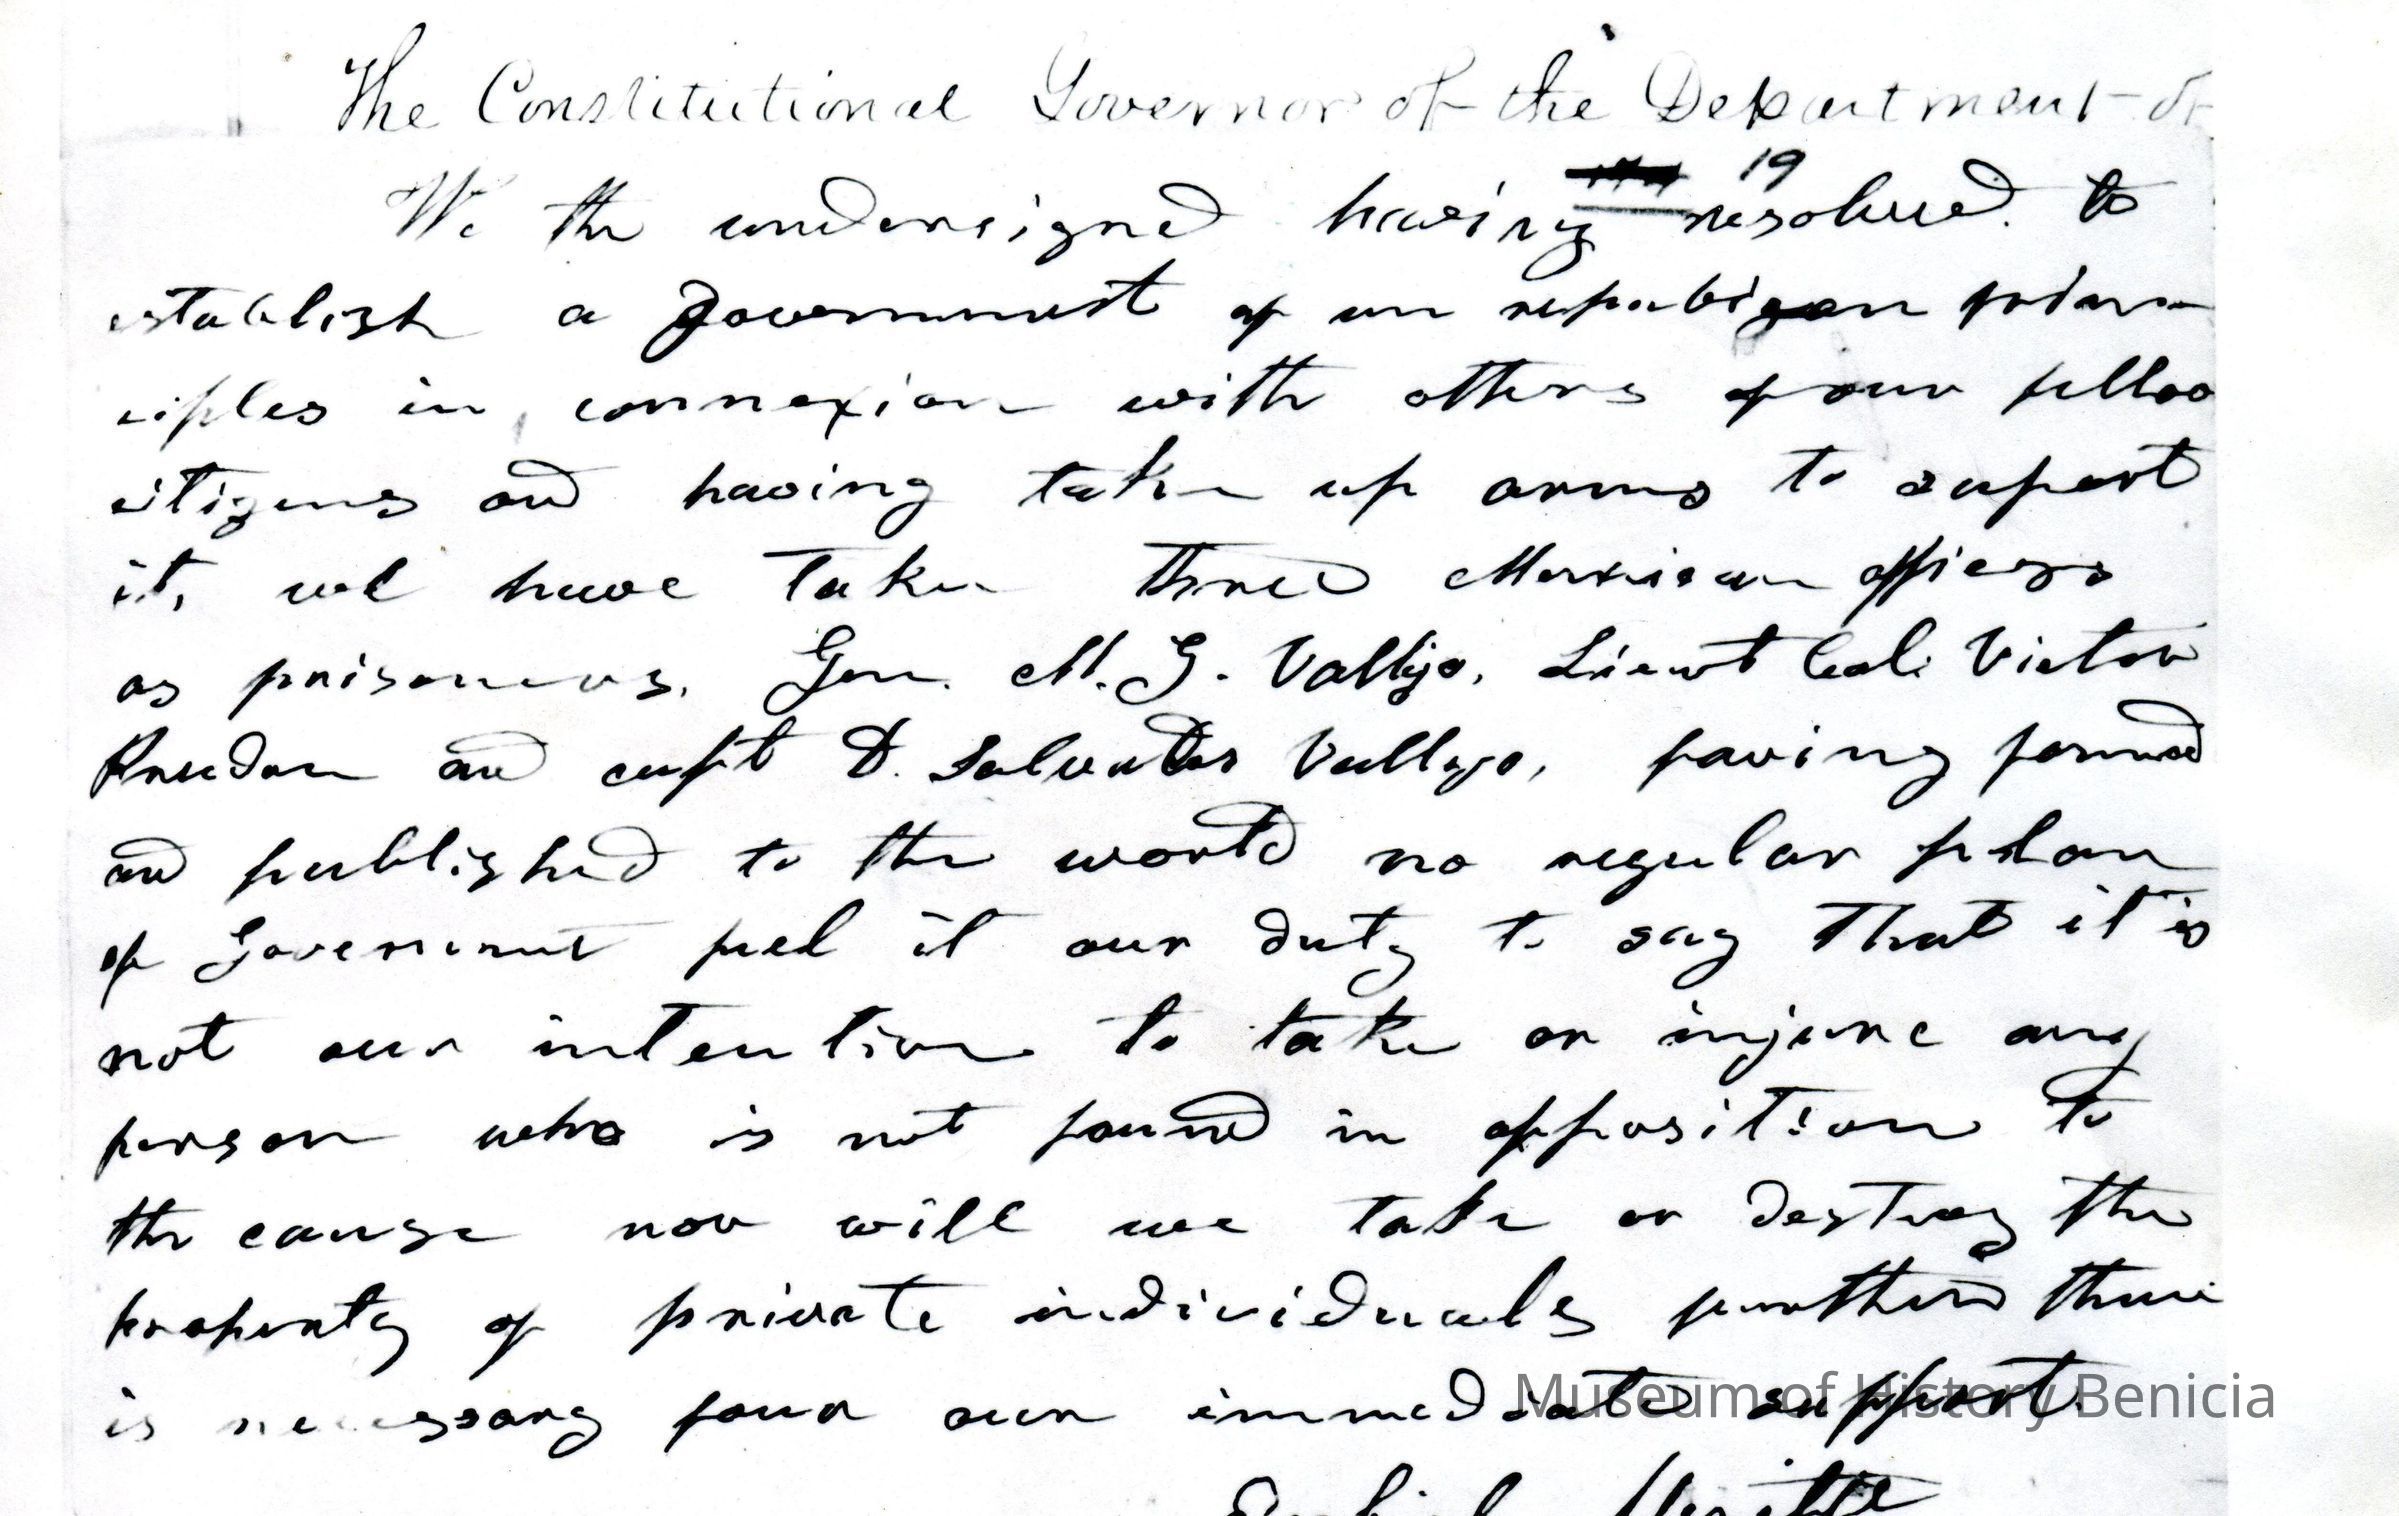 The Constitutional Governor of the Department of
19
We the undersigned having resolved to
establish a government of un repubican prin
ciples in connexion with others of our felloo
citizens and having taken up arms to suport
it, we have taken three Mexican officers
as prisoners. Gen. M. G. Vallejo, Lieut Col. Victor
Prudon and capt D. Salvador Vallejo, having formed
and published to the world no regular plan
of Government feel it our duty to say that it is
not our intention to take or injure any
person who is not found in opposition to
the cause nor will we take or destroy the
property of private individuals further than
is necessary four our immediate support.
Museum of History Benicia
Ezekiel Merritt